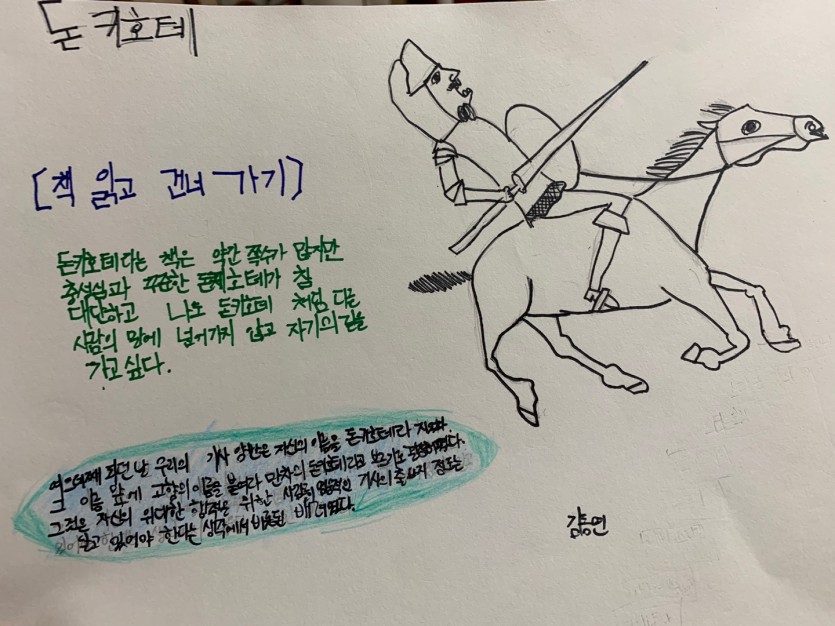 돈키호테
[책 읽고 건너가기]
돈키호테라는 책은 약간 쪽수가 많지만
충성심과 꾸준한 돈키호테가 참
대단하고 나도 돈키호테 처럼 다른
사람의 말에 넘어가지 않고 자기의 길을
가고 싶다.
여드레째 되던 날 우리의 기사 양반은 자신의 이름을 돈키호테라 지었다.
그 이름 앞에 고향의 이름을 붙여라 만차의 돈키호테라고 부르기로
그것은 자신의 위대한 행적을 위한 기사의 정도는
알고 있어야 한다는 생각에서 비롯된
김동연